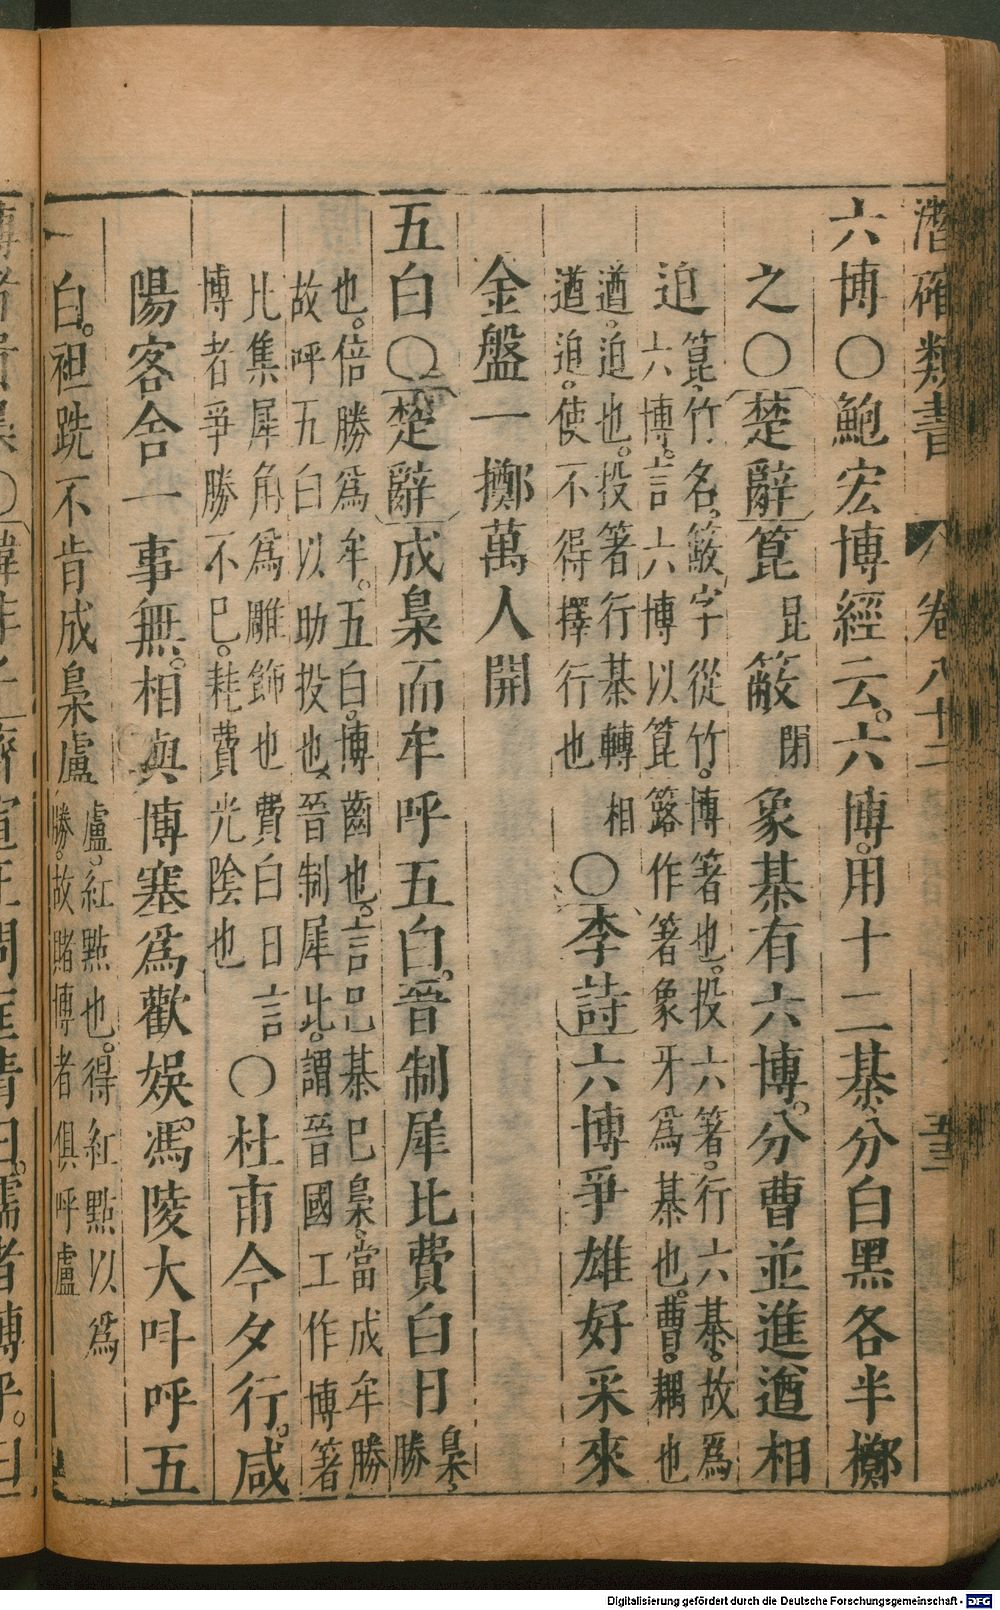 潛確類書 卷八十二
六博〇鮑宏博經云。六博。用十二棊、分白黑各半擲
之〇楚辭箟昆蔽閉象棊有六博。分曹並進遒相
迫箟、竹名、蔽字從竹。博箸也。投六箸。行六棊。故爲
六博。言六博以箟簬作箸象牙爲棊也。曹。耦也
遒。迫也。投箸行棊轉相
遒迫。使不得擇行也〇李詩六博爭雄好采來
金盤一擲萬人開
五白〇楚辭成梟而牟呼五白。晉制犀比費白日梟、
勝
也。倍勝爲牟。五白。博齒也。言已棊已梟。當成牟勝
故呼五白以助投也、晉制犀比。謂晉國工作博箸
比集犀角爲雕飾也費白日言
博者爭勝不已。耗費光陰也〇杜甫今夕行。咸
陽客舍一事無。相與博塞爲歡娛。馮陵大呌呼五
白。袒跣不肯成梟盧盧、紅點也。得紅點以爲
勝。故賭博者俱呼盧
Digitalisierung gefördert durch die Deutsche Forschungsgemeinschaft - DFG